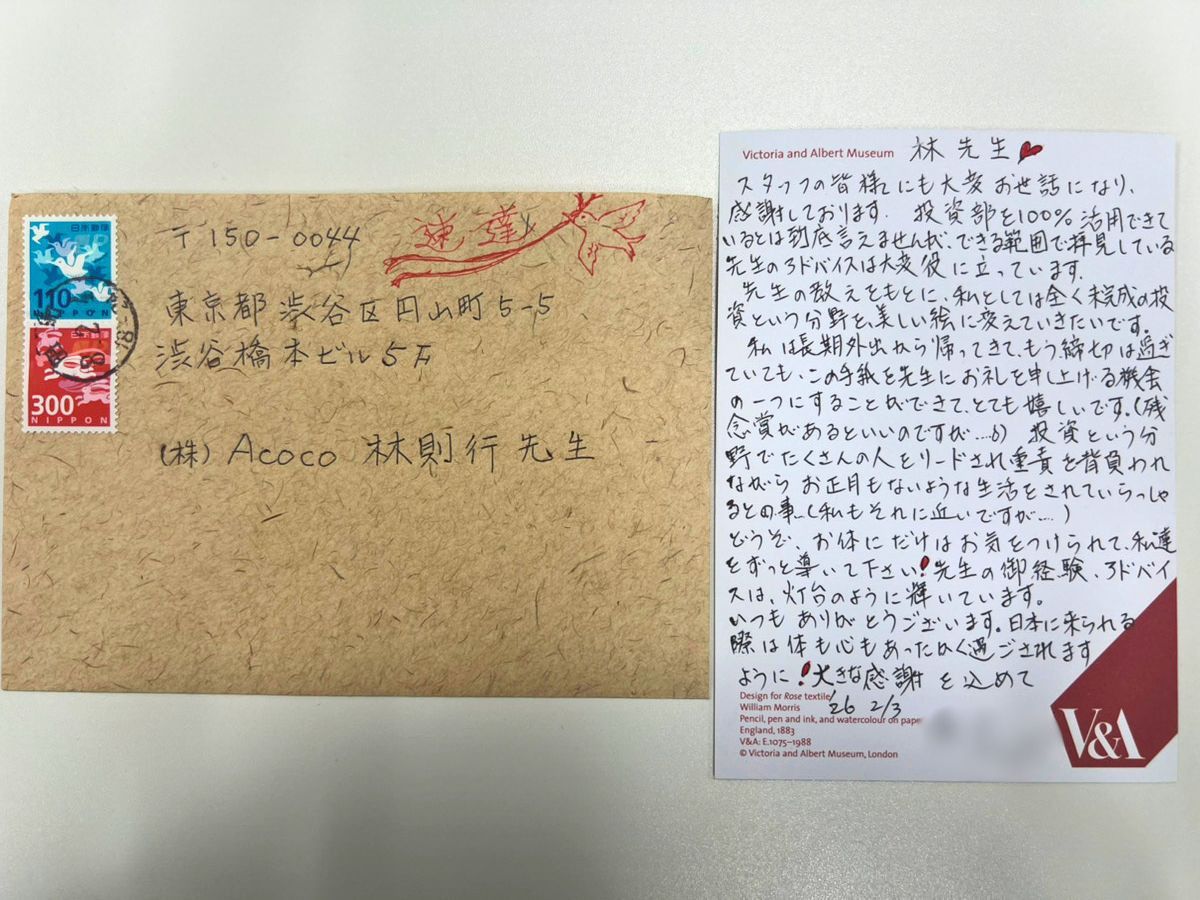 日本郵便
110
NIPPON
日本郵便
300
NIPPON
速達
〒150-0044
東京都渋谷区円山町5-5
渋谷橋本ビル5F
(株) Acoco 林則行先生
Victoria and Albert Museum
林先生
スタッフの皆様にも大変お世話になり、
感謝しております。投資部を100%活用できて
いるとは到底言えませんが、できる範囲で拝見している
先生のアドバイスは大変役に立っています。
先生の教えをもとに、私としては全く未完成の投
資という分野を、美しい絵に変えていきたいです。
私は長期外出から帰ってきて、もう締切は過ぎ
ていても、この手紙を先生にお礼を申し上げる機会
の一つにすることができて、とても嬉しいです。(残
念賞があるといいのですが…。) 投資という分
野でたくさんの人をリードされ重責を背負われ
ながら お正月もないような生活をされていらっしゃ
るとの事…(私もそれに近いですが…。)
どうぞ、お体にだけはお気をつけられて、私達
をずっと導いて下さい!先生の御経験、アドバイ
スは、灯台のように輝いています。
いつもありがとうございます。日本に来られる
際は体も心もあったかく過ごされます
ように!大きな感謝を込めて
'26 2/3
Design for Rose textile
William Morris
Pencil, pen and ink, and watercolour on paper
England, 1883
V&A: E.1075–1988
© Victoria and Albert Museum, London
V&A